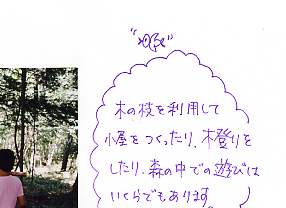 木の枝を利用して
小屋をつくったり、木橙りを
したり、森の中での遊びは
いくらでもあります